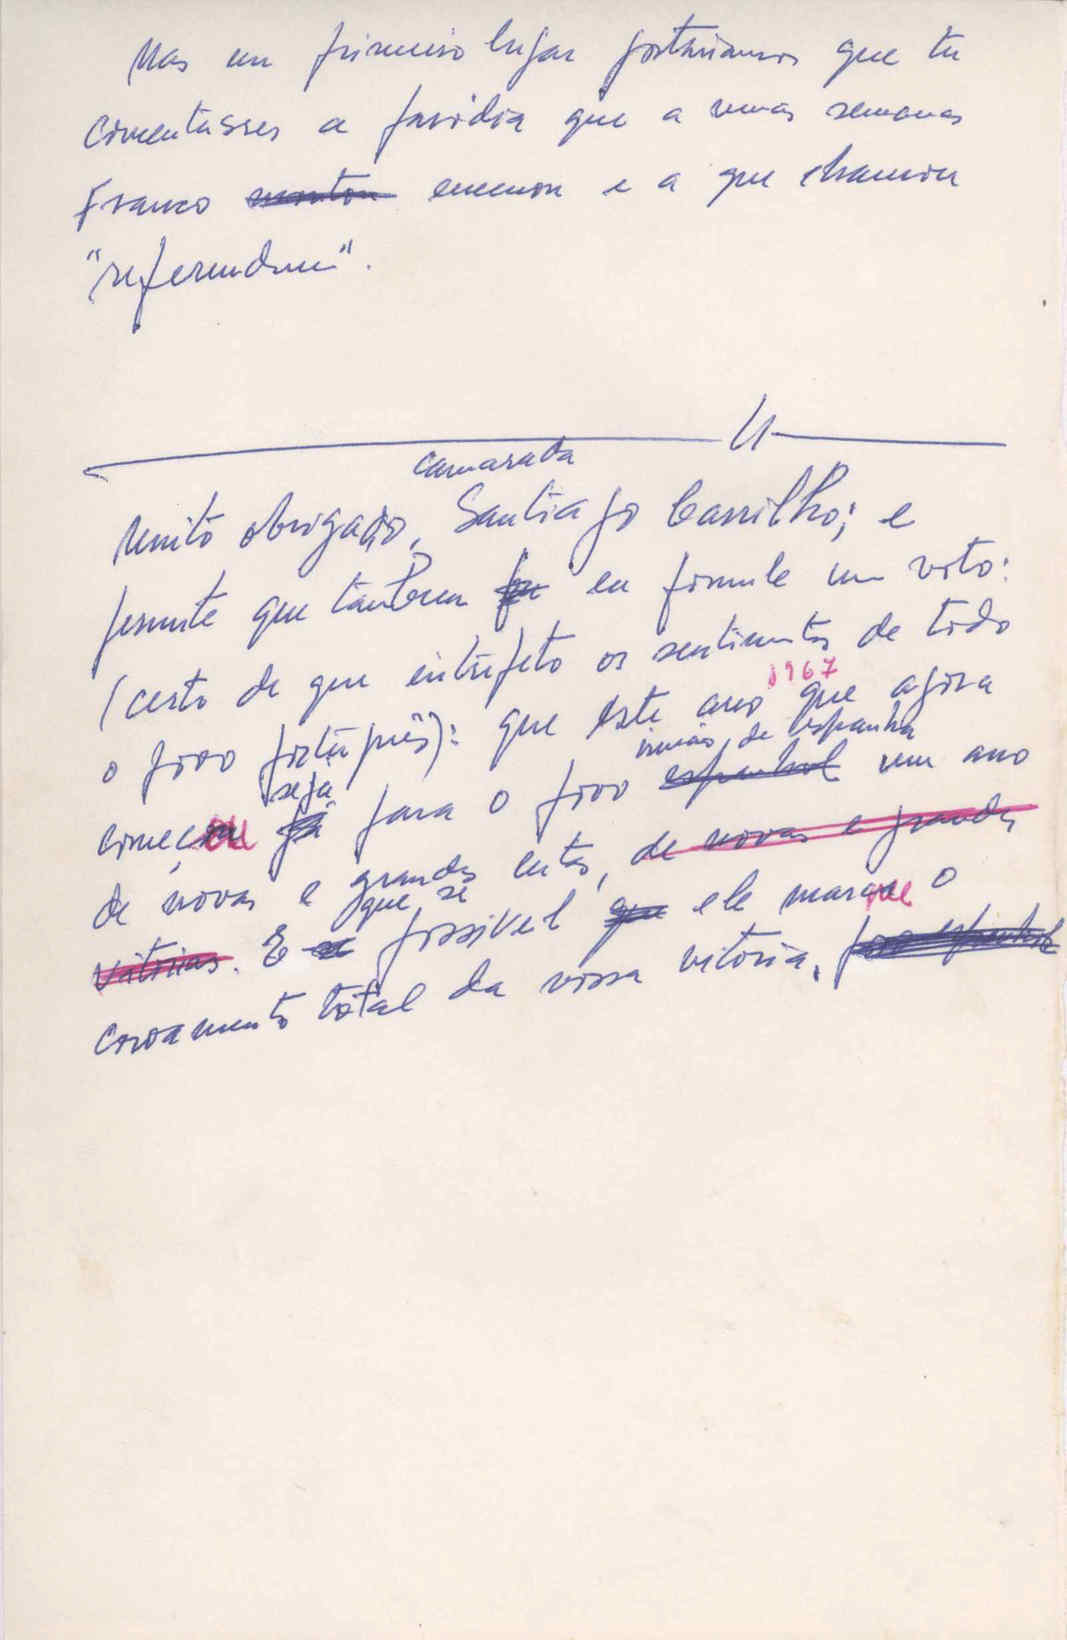 Mas em primeiro lugar gostaríamos que tu
comentasses a paródia que a umas semanas
Franco montou encenou e a que chamou
"referendum".
camarada
Muito obrigado, Santiago Carrilho; e
permite que também eu formule um voto:
(certo de que intrepeto os sentimentos de todo
1967
o povo português): que este ano que agora
irmão de Espanha
seja
começou já para o povo espanhol um ano
de novas e grandes lutas, de novas e grandes
que se
vitórias. E possível que ele marque o
coroamento total da vossa vitória. povo espanhol